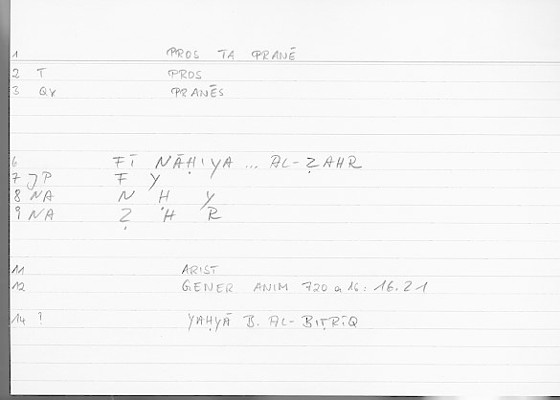 1 PROS TA PRANĒ
2 T PROS
3 QY PRANĒS
6 FĪ NĀḤIYA ... AL-ẒAHR
7 JP F Y
8 NA N Ḥ Y
9 NA Ẓ H R
11 ARIST
12 GENER ANIM 720 a 16: 16.21
14 ! YAḤYĀ B. AL-BIṬRĪQ